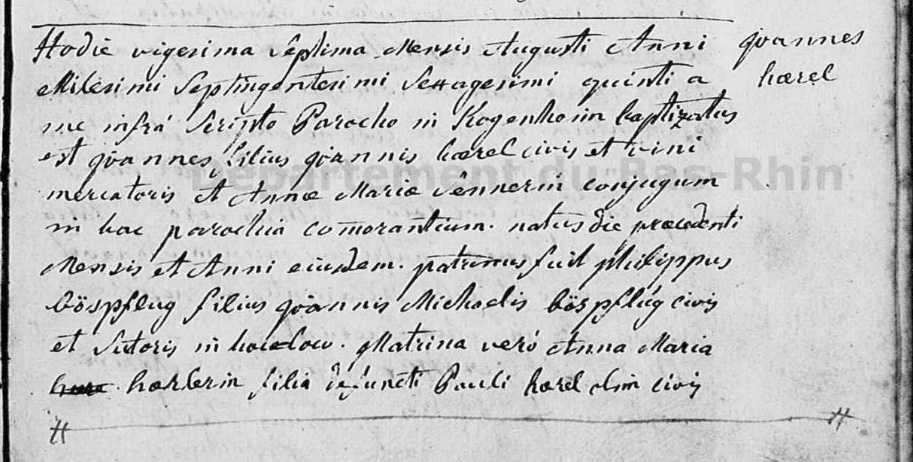 Hodie vigesima Septima Mensis Augusti Anni
Joannes
Milesimi Septingentesimi Sexagesimi quinti a
haerel
me infrá Scripto Parocho in Kogenheim baptizatus
est Joannes filius Joannis haerel civis et vini
Département du Bas-Rhin
mercatoris et Annae Mariae Sennerin conjugum
in hac parochia comorantium. natus die praecedenti
Mensis et Anni eiusdem. patrinus fuit philippus
böspflug filius Joannis Michaelis böspflúg civis
et Sutoris in hocloco. Matrina veró Anna Maria
haerlerin filia defuncti Pauli haerel olim civis